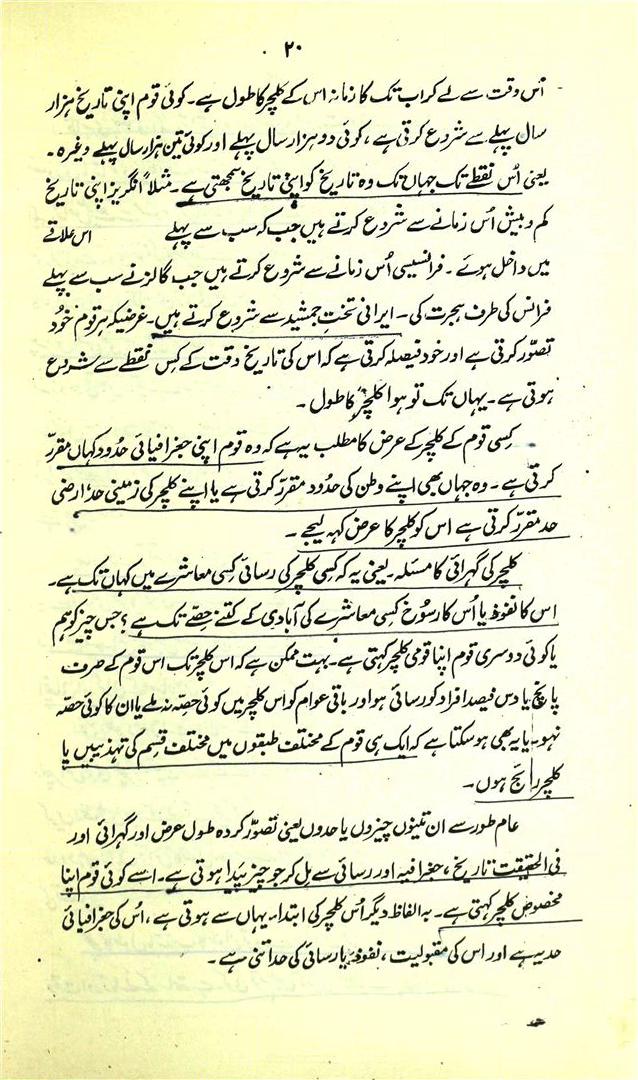 ۲۰
اُس وقت سے لے کر اب تک کا زمانہ اس کے کلچر کا طول ہے۔ کوئی قوم اپنی تاریخ ہزار
سال پہلے سے شروع کرتی ہے، کوئی دو ہزار سال پہلے اور کوئی تین ہزار سال پہلے وغیرہ۔
یعنی اُس نقطے تک جہاں تک وہ تاریخ کو اپنی تاریخ سمجھتی ہے۔ مثلاً انگریز اپنی تاریخ
کم و بیش اُس زمانے سے شروع کرتے ہیں جب کہ سب سے پہلے اس علاقے
میں داخل ہوئے۔ فرانسیسی اُس زمانے سے شروع کرتے ہیں جب گالز نے سب سے پہلے
فرانس کی طرف ہجرت کی۔ ایرانی تختِ جمشید سے شروع کرتے ہیں۔ غرضیکہ ہر قوم خود
تصوّر کرتی ہے اور خود فیصلہ کرتی ہے کہ اس کی تاریخ وقت کے کس نقطے سے شروع
ہوتی ہے۔ یہاں تک تو ہوا کلچر کا طول۔
کسی قوم کے کلچر کے عرض کا مطلب یہ ہے کہ وہ قوم اپنی جغرافیائی حدُود کہاں مقرّر
کرتی ہے۔ وہ جہاں بھی اپنے وطن کی حدُود مقرّر کرتی ہے یا اپنے کلچر کی زمینی حد، ارضی
حد مقرّر کرتی ہے اس کو کلچر کا عرض کہہ لیجے۔
کلچر کی گہرائی کا مسئلہ۔ یعنی یہ کہ کسی کلچر کی رسائی کسی معاشرے میں کہاں تک ہے۔
اس کا نفوذ یا اُس کا رسُوخ کسی معاشرے کی آبادی کے کتنے حصّے تک ہے؟ جس چیز کو ہم
یا کوئی دوسری قوم اپنا قومی کلچر کہتی ہے۔ بہت ممکن ہے کہ اس کلچر تک اس قوم کے صرف
پانچ یا دس فیصد افراد کو رسائی ہو اور باقی عوام کو اس کلچر میں کوئی حصّہ نہ ملے یا ان کا کوئی حصّہ
نہو۔ یا یہ بھی ہو سکتا ہے کہ ایک ہی قوم کے مختلف طبقوں میں مختلف قسم کی تہذیبیں یا
کلچر رائج ہوں۔
عام طور سے ان تینوں چیزوں یا حدوں یعنی تصوّر کردہ طول عرض اور گہرائی اور
فی الحقیقت تاریخ، جغرافیہ اور رسائی سے مل کر جو چیز پیدا ہوتی ہے۔ اسے کوئی قوم اپنا
مخصوص کلچر کہتی ہے۔ بہ الفاظ دیگر اُس کلچر کی ابتدا۔ یہاں سے ہوتی ہے، اُس کی جغرافیائی
حد یہ ہے اور اس کی مقبولیت، نفوذ یا رسائی کی حد اتنی ہے۔